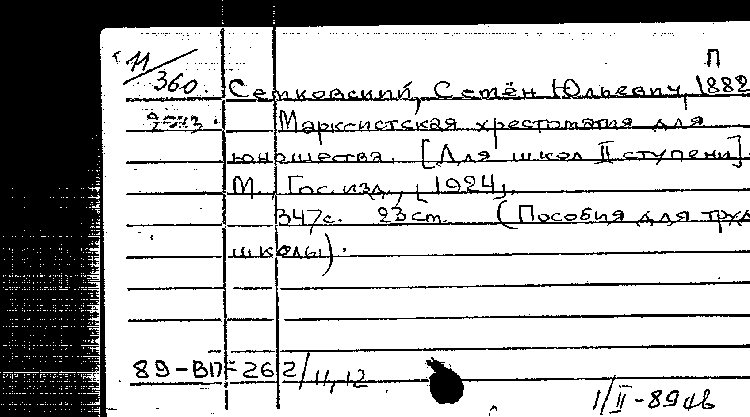 П
11/360. Семковский, Семён Юльевич, 1882
Марксистская хрестоматия для
юношества. [Для школ II ступени].
М., Гос. изд., [1924].
347с. 23 см. (Пособия для труд.
школы).
89-ВП-262/11,12
1/II-89